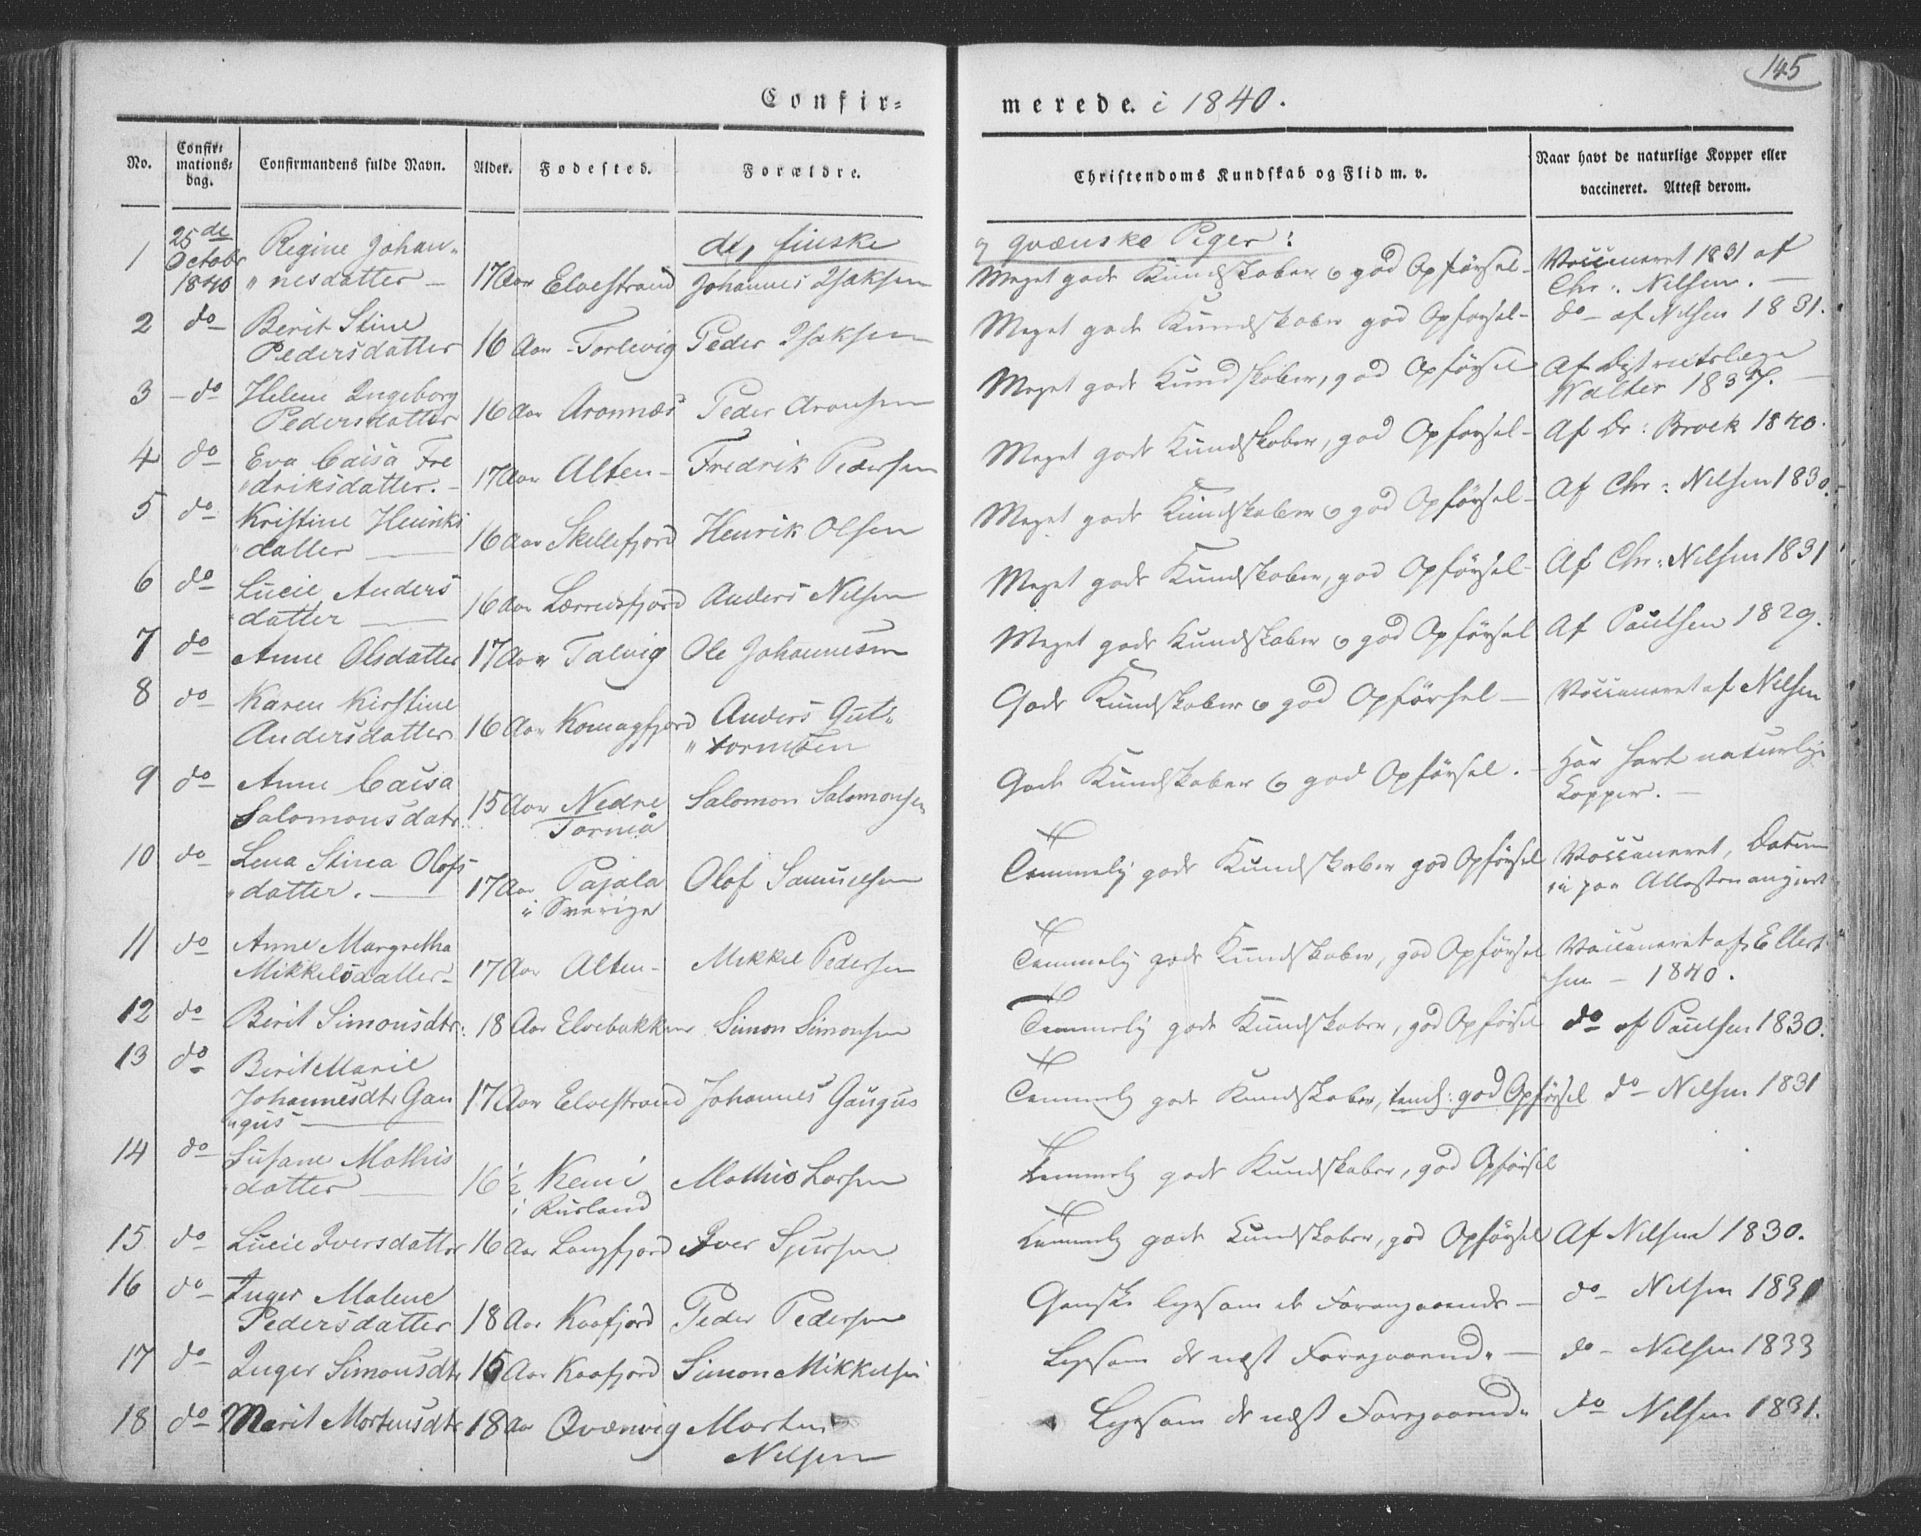 145
Confir=
merede. i 1840.
No.
Confir=
mations=
dag.
Confirmandens fulde Navn.
Alder.
Fødested.
Forældre.
Christendoms Kundskab og Flid m. v.
Naar havt de naturlige Kopper eller
vaccineret. Attest derom.
de, finske
og qvænske Piger:
1 25de Octobr 1840 Regine Johan„
„nesdatter — 17 Aar Elvestrand Johannes Isaksen Meget gode Kundskaber og god Opførsel – Vaccineret 1831 af
Chr: Nilsen. —
2 do Berit Stine
Pedersdatter 16 Aar Torlevig Peder Isaksen Meget gode Kundskaber god Opførsel – do – af Nilsen 1831.
3 – do Helene Ingeborg
Pedersdatter 16 Aar Aronnæs Peder Aronsen Meget gode Kundskaber, god Opførsel Af Distriktslæge
Walter 1837. —
4 do Eva Caisa Fre
„driksdatter. – 17 Aar Alten – Fredrik Pedersen Meget gode Kundskaber, god Opførsel – Af Dr: Brock 1840.
5 do Kristine Heinriks
„datter — 16 Aar Skillefjord Henrik Olsen Meget gode Kundskaber og god Opførsel – Af Chr: Nilsen 1830.
6 do Lucie Anders
„datter — 16 Aar Lærredsfjord Anders Nilsen Meget gode Kundskaber, god Opførsel – Af Chr: Nilsen 1831
7 do Anne Olsdatter 17 Aar Talvig Ole Johannesen Meget gode Kundskaber og god Opførsel Af Paulsen 1829.
8 do Karen Kirstine
Andersdatter 16 Aar Komagfjord Anders Gut„
„tormsen Gode Kundskaber og god Opførsel — Vaccineret af Nilsen
9 do Anne Caisa
Salomonsdatr 15 Aar Nedre
Torneå Salomon Salomonsen Gode Kundskaber og god Opførsel. – Har havt naturlige
Kopper. —
10 do Lena Stina Olofs
„datter. — 17 Aar Pajala
i Sverige Olof Samuelsen Temmelig gode Kundskaber god Opførsel Vaccineret, Datum
ei paa Attesten angivet
11 do Anne Margretha
Mikkelsdatter – 17 Aar Alten – Mikkel Pedersen Temmelig gode Kundskaber, god Opførsel Vaccineret af Ellert
sen – 1840.
12 do Berit Simonsdtr: 18 Aar Elvebakken Simon Simonsen Temmelig gode Kundskaber, god Opførsel do af Paulsen 1830.
13 do Berit Marie
Johannesdtr Gau
„gus — 17 Aar Elvestrand Johannes Gaugus Temmelig gode Kundskaber, god Opførsel do – Nilsen 1831
14 do Susane Mathis
„datter — 16 ½ Kemi
i Rusland Mathis Larsen Temmelig gode Kundskaber, god Opførsel
15 do Lucie Iversdatter 16 Aar Langfjord Iver Sjursen Temmelig gode Kundskaber, god Opførsel Af Nilsen 1830.
16 do Inger Malene
Pedersdatter 18 Aar Kaafjord Peder Pedersen Ganske ligesom de Foregaaende — do – Nilsen 1831
17 do Inger Simonsdtr 16 Aar Kaafjord Simon Mikkelsen Ligesom de næst Foregaaende — do – Nilsen 1833
18 do Marit Mortensdtr 18 Aar Qvænvig Morten
Nilsen Ligesom de næst Foregaaende do Nilsen 1831.